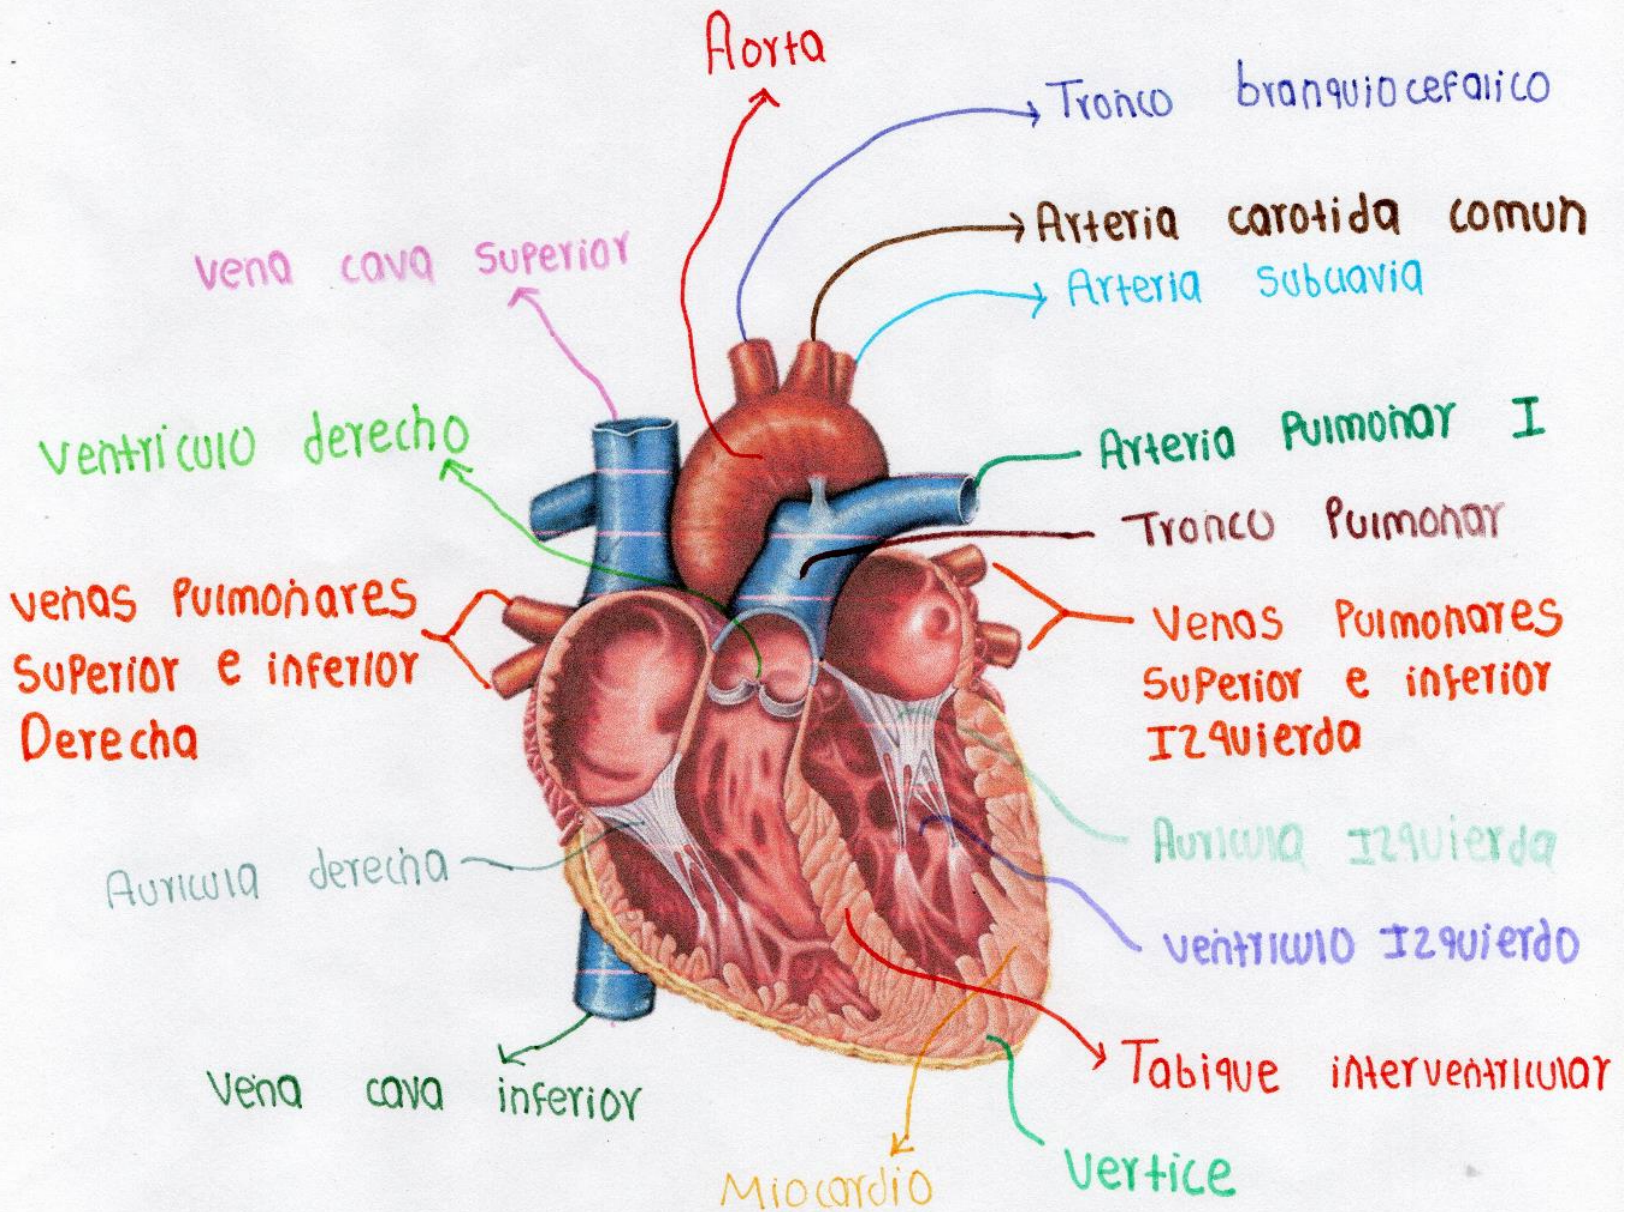 Aorta
Tronco branquiocefalico
Arteria carotida comun
vena cava superior
Arteria subcavia
ventriculo derecho
Arteria Pulmonar I
Tronco Pulmonar
venas Pulmonares
Superior e inferior
Derecha
Venas Pulmonares
Superior e inferior
Izquierda
Auricula derecha
Auricula Izquierda
ventriculo Izquierdo
Vena cava inferior
Tabique interventricular
Vertice
Miocardio